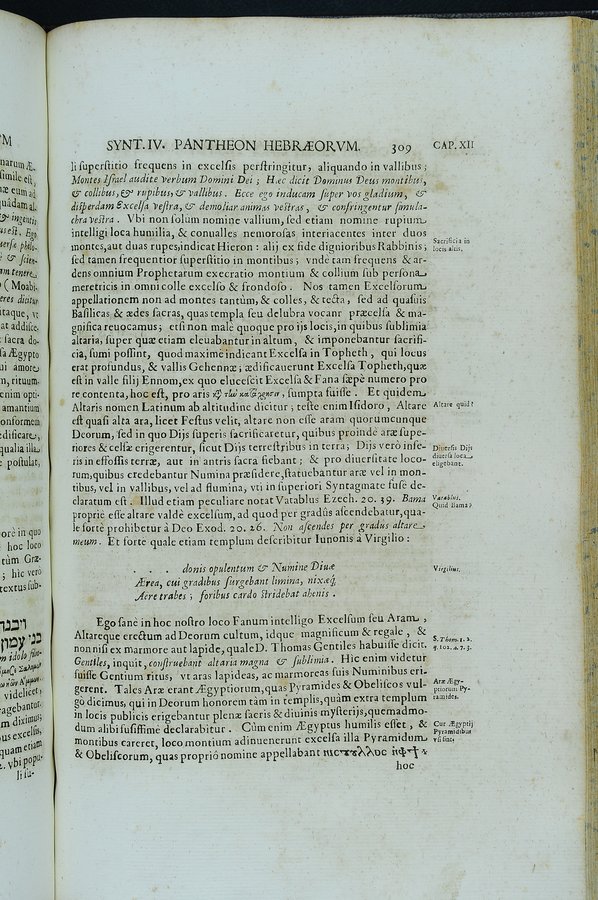 SYNT. IV. PANTHEON HEBRÆORVM. 309 CAP. XII
li superstitio frequens in excelsis perstringitur, aliquando in vallibus;
Montes Israel audite verbum Domini Dei; Hæc dicit Dominus Deus montibus,
& collibus, & rupibus, & vallibus. Ecce ego inducam super vos gladium, &
disperdam Excelsa vestra, & demoliar animas vestras, & confringentur simula-
chra vestra. Vbi non solum nomine vallium, sed etiam nomine rupium
intelligi loca humilia, & conualles nemorosas interiacentes inter duos
montes, aut duas rupes, indicat Hieron: alij ex fide dignioribus Rabbinis;
sed tamen frequentior superstitio in montibus; vnde tam frequens & ar-
dens omnium Prophetarum execratio montium & collium sub persona
meretricis in omni colle excelso & frondoso. Nos tamen Excelsorum
appellationem non ad montes tantùm, & colles, & tecta, sed ad quasuis
Basilicas & ædes sacras, quas templa seu delubra vocant præcelsa & ma-
gnifica reuocamus; etsi non malè quoque pro ijs locis, in quibus sublimia
altaria, super quæ etiam eleuabantur in altum, & imponebantur sacrifi-
cia, sumi possint, quod maximè indicant Excelsa in Topheth, qui locus
erat profundus, & vallis Gehennæ; ædificauerunt Excelsa Topheth, quæ
est in valle filij Ennom, ex quo elucescit Excelsa & Fana sæpè numero pro
re contenta, hoc est, pro aris sumpta fuisse. Et quidem
Altaris nomen Latinum ab altitudine dicitur; teste enim Isidoro, Altare
est quasi alta ara, licet Festus velit, altare non esse aram quorumcunque
Deorum, sed in quo Dijs superis sacrificaretur, quibus proinde aræ supe-
riores & celsæ erigerentur, sicut Dijs terrestribus in terra; Dijs verò infe-
ris in effossis terræ, aut in antris sacra fiebant; & pro diuersitate loco-
rum, quibus credebantur Numina præsidere, statuebantur aræ vel in mon-
tibus, vel in vallibus, vel ad flumina, vti in superiori Syntagmate fusè de-
claratum est. Illud etiam peculiare notat Vatablus Ezech. 20. 39. Bama
propriè esse altare valdè excelsum, ad quod per gradus ascendebatur, qua-
le fortè prohibetur à Deo Exod. 20. 26. Non ascendes per gradus altare
meum. Et fortè quale etiam templum describitur Iunonis à Virgilio:
. . . donis opulentum & Numine Diuæ
Ærea, cui gradibus surgebant limina, nixæq;
Aere trabes; foribus cardo stridebat ahenis.
Ego sanè in hoc nostro loco Fanum intelligo Excelsum seu Aram,
Altareque erectum ad Deorum cultum, idque magnificum & regale, &
non nisi ex marmore aut lapide, quale D. Thomas Gentiles habuisse dicit.
Gentiles, inquit, construebant altaria magna & sublimia. Hic enim videtur
fuisse Gentium ritus, vt aras lapideas, ac marmoreas suis Numinibus eri-
gerent. Tales Aræ erant Ægyptiorum, quas Pyramides & Obeliscos vul-
gò dicimus, qui in Deorum honorem tàm in templis, quàm extra templum
in locis publicis erigebantur plenæ sacris & diuinis mysterijs, quemadmo-
dum alibi fusissimè declarabitur. Cùm enim Ægyptus humilis esset, &
montibus careret, loco montium adinuenerunt excelsa illa Pyramidum
& Obeliscorum, quas propriò nomine appellabant
hoc
Sacrificia in
locis altis.
Altare quid?
Diuersis Dijs
diuersa loca
eligebant.
Vatablus.
Quid Bama?
Virgilius.
S. Thom. 1. 2.
q. 102. a. 7. 3.
Aræ Ægy-
ptiorum Py-
ramides.
Cur Ægyptij
Pyramidibus
vsi sint.